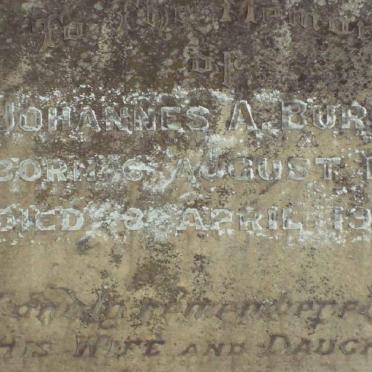 To The Memor
of
JOHANNES A. BUR
BORN 6 AUGUST 1
DIED 8 APRIL 19
Fondly remembered
HIS WIFE AND DAUGH